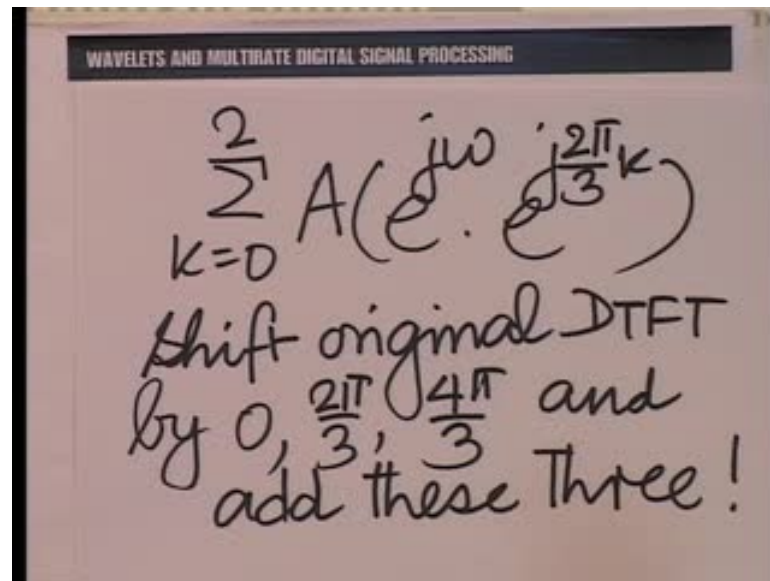 WAVELETS AND MULTIRATE DIGITAL SIGNAL PROCESSING
2
Σ A(e^{jω} · e^{j\frac{2π}{3}k})
k=0
shift original DTFT
by 0, \frac{2π}{3}, \frac{4π}{3} and
add these Three!